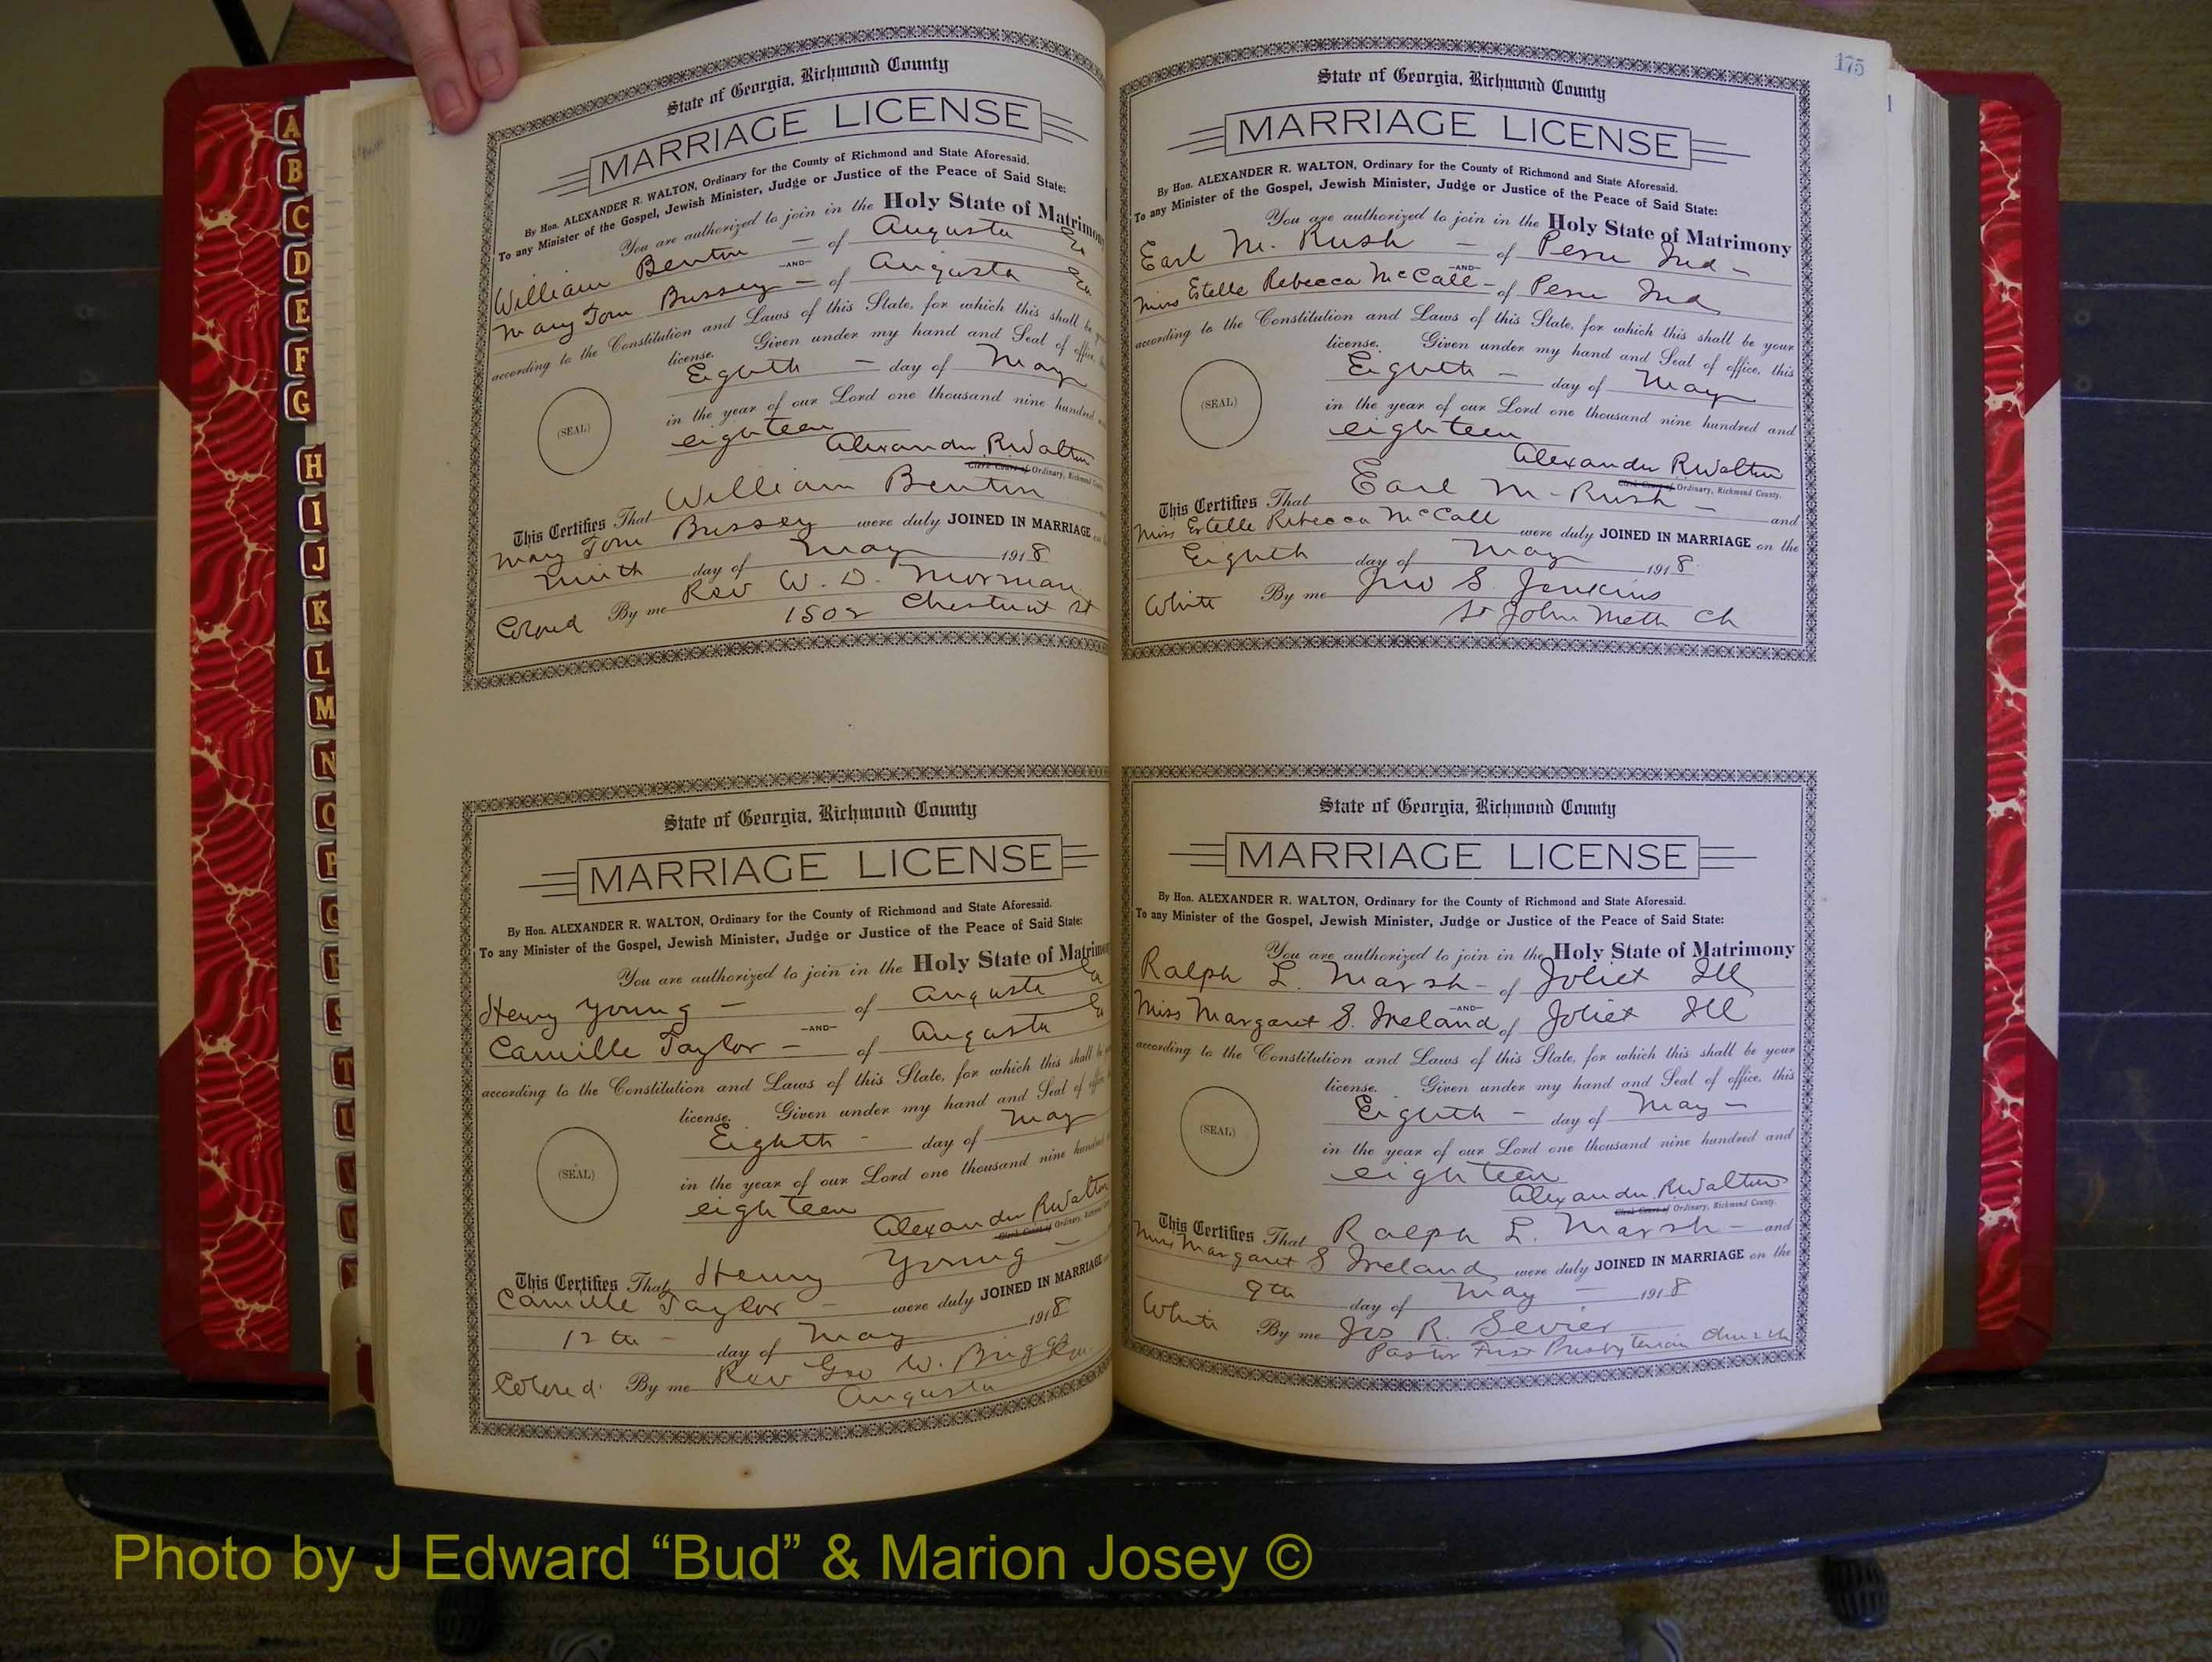 A
B
C
D
E
F
G
H
I
J
K
L
M
N
O
P
T
U
State of Georgia, Richmond County
MARRIAGE LICENSE
By Hon. ALEXANDER R. WALTON, Ordinary for the County of Richmond and State Aforesaid.
To any Minister of the Gospel, Jewish Minister, Judge or Justice of the Peace of Said State:
You are authorized to join in the Holy State of Matrimony
William Benton - of Augusta Ga
-AND-
Mary Tom Bussey - of Augusta Ga
according to the Constitution and Laws of this State, for which this shall be
license. Given under my hand and Seal of office,
Eighth - day of May
(SEAL)
in the year of our Lord one thousand nine hundred
eighteen
Alexander R Walton
Clerk Court of Ordinary, Richmond County
This Certifies That William Benton
Mary Tom Bussey were duly JOINED IN MARRIAGE
Ninth day of May 1918
Colored By me Rev W. D. Norman
1502 Chestnut St
State of Georgia, Richmond County
MARRIAGE LICENSE
By Hon. ALEXANDER R. WALTON, Ordinary for the County of Richmond and State Aforesaid.
To any Minister of the Gospel, Jewish Minister, Judge or Justice of the Peace of Said State:
You are authorized to join in the Holy State of Matrimony
Henry Young - of Augusta Ga
-AND-
Camille Taylor - of Augusta Ga
according to the Constitution and Laws of this State, for which this shall be
license. Given under my hand and Seal of
Eighth - day of May
(SEAL)
in the year of our Lord one thousand nine hundred
eighteen
Alexander R Walton
Clerk Court of Ordinary, Richmond
This Certifies That Henry Young -
Camille Taylor - were duly JOINED IN MARRIAGE
12th - day of May 1918
Colored By me Rev Geo W.
Augusta
175
1
State of Georgia, Richmond County
MARRIAGE LICENSE
By Hon. ALEXANDER R. WALTON, Ordinary for the County of Richmond and State Aforesaid.
To any Minister of the Gospel, Jewish Minister, Judge or Justice of the Peace of Said State:
You are authorized to join in the Holy State of Matrimony
Earl M. Rush - of Peru Ind -
-AND-
Miss Estelle Rebecca McCall - of Peru Ind
according to the Constitution and Laws of this State, for which this shall be your
license. Given under my hand and Seal of office, this
Eighth - day of May
(SEAL)
in the year of our Lord one thousand nine hundred and
eighteen
Alexander R Walton
Clerk Court of Ordinary, Richmond County.
This Certifies That Earl M - Rush - and
Miss Estelle Rebecca McCall were duly JOINED IN MARRIAGE on the
Eighth day of May 1918
White By me Jno S. Jenkins
St John Meth Ch
State of Georgia, Richmond County
MARRIAGE LICENSE
By Hon. ALEXANDER R. WALTON, Ordinary for the County of Richmond and State Aforesaid.
To any Minister of the Gospel, Jewish Minister, Judge or Justice of the Peace of Said State:
You are authorized to join in the Holy State of Matrimony
Ralph L. Marsh - of Joliet Ill
-AND-
Miss Margaret S. Ireland of Joliet Ill
according to the Constitution and Laws of this State, for which this shall be your
license. Given under my hand and Seal of office, this
Eighth - day of May -
(SEAL)
in the year of our Lord one thousand nine hundred and
eighteen
Alexander R Walton
Clerk Court of Ordinary, Richmond County.
This Certifies That Ralph L. Marsh - and
Miss Margaret S Ireland were duly JOINED IN MARRIAGE on the
9th day of May - 1918
White By me Jos R. Sevier
Pastor First Presbyterian Church
Photo by J Edward “Bud” & Marion Josey ©